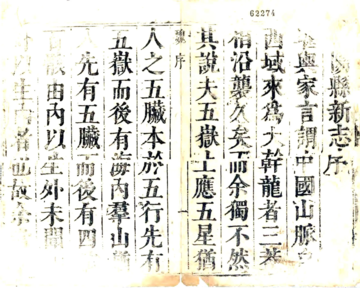 62274
縣新志序
輿家言謂中國山脈
西域來爲大幹龍者三
相沿襲久矣而余獨不然
其說夫五嶽上應五星猶
序
人之五臟本於五行先有
五嶽而後有海內羣山
先有五臟而後有四
由內以生外未
也故